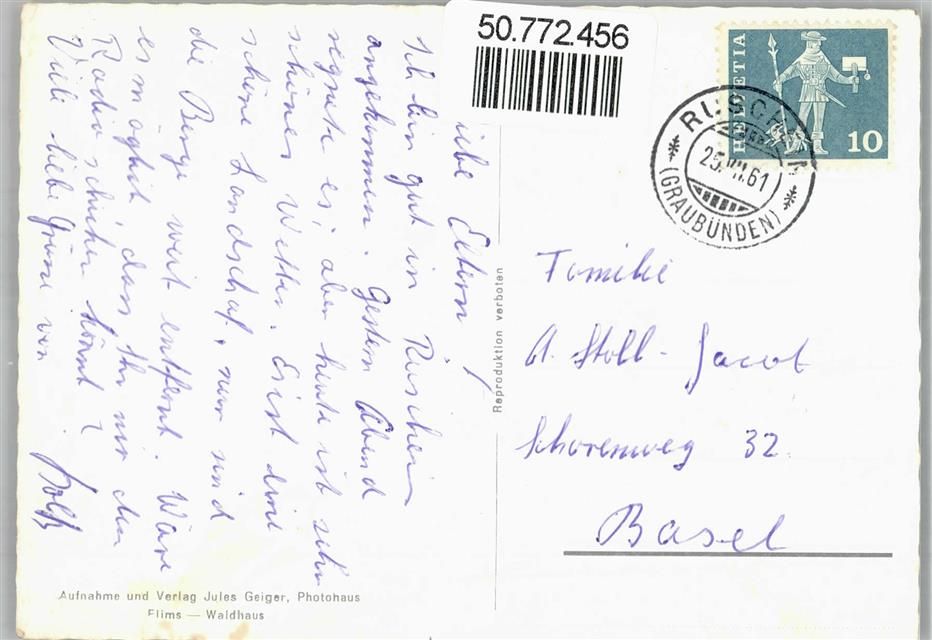 50.772.456
HELVETIA
10
RUSCHEIN
25. VII. 61
(GRAUBÜNDEN)
iebe Eltern
Ich bin gut in Ruschein
angekommen. Gestern Abend
regnete es, aber heute ist sehr
schönes Wetter. Es ist eine
schöne Landschaft, nur sind
die Berge weit entfernt. Wäre
es möglich dass Ihr mir den
Radio schicken könnt?
Viele liebe Grüsse von
Rolf
Reproduktion verboten
Familie
A. Stoll - Jacot
Schorenweg 32.
Basel
Aufnahme und Verlag Jules Geiger, Photohaus
Flims — Waldhaus